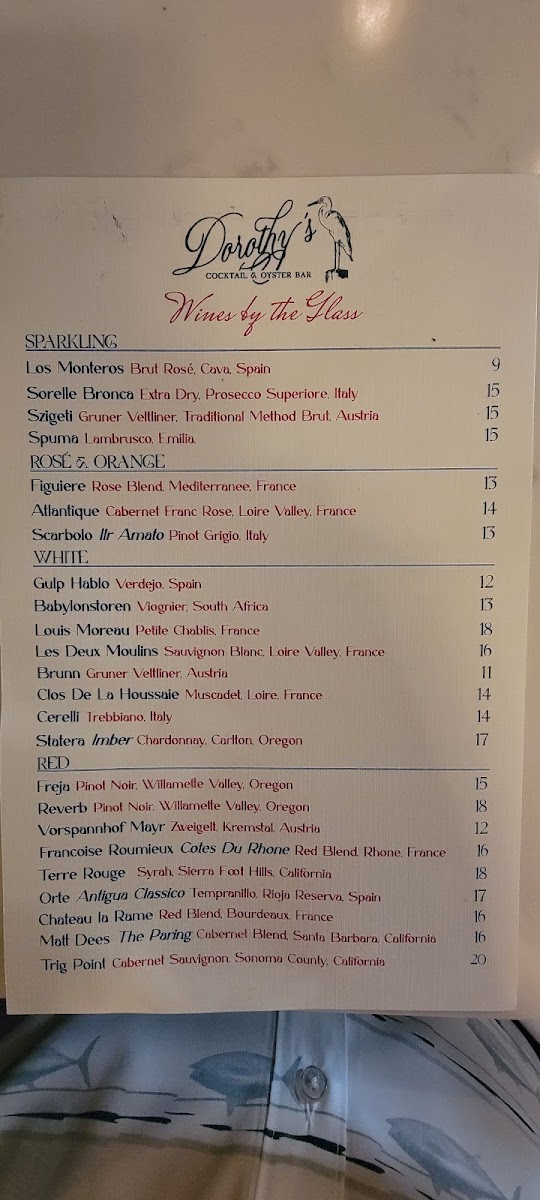 Dorothy's
COCKTAIL & OYSTER BAR
Wines by the Glass
SPARKLING
Los Monteros Brut Rosé, Cava, Spain 9
Sorelle Bronca Extra Dry, Prosecco Superiore, Italy 15
Szigeti Gruner Veltliner, Traditional Method Brut, Austria 15
Spuma Lambrusco, Emilia, 15
ROSÉ & ORANGE
Figuiere Rose Blend, Mediterranee, France 13
Atlantique Cabernet Franc Rose, Loire Valley, France 14
Scarbolo Ilr Amato Pinot Grigio, Italy 13
WHITE
Gulp Hablo Verdejo, Spain 12
Babylonstoren Viognier, South Africa 13
Louis Moreau Petite Chablis, France 18
Les Deux Moulins Sauvignon Blanc, Loire Valley, France 16
Brunn Gruner Veltliner, Austria 11
Clos De La Houssaie Muscadet, Loire, France 14
Cerelli Trebbiano, Italy 14
Statera Imber Chardonnay, Carlton, Oregon 17
RED
Freja Pinot Noir, Willamette Valley, Oregon 15
Reverb Pinot Noir, Willamette Valley, Oregon 18
Vorspannhof Mayr Zweigelt, Kremstal, Austria 12
Francoise Roumieux Cotes Du Rhone Red Blend, Rhone, France 16
Terre Rouge Syrah, Sierra Foot Hills, California 18
Orte Antigua Classico Tempranillo, Rioja Reserva, Spain 17
Chateau la Rame Red Blend, Bourdeaux, France 16
Matt Dees The Paring Cabernet Blend, Santa Barbara, California 16
Trig Point Cabernet Sauvignon, Sonoma County, California 20